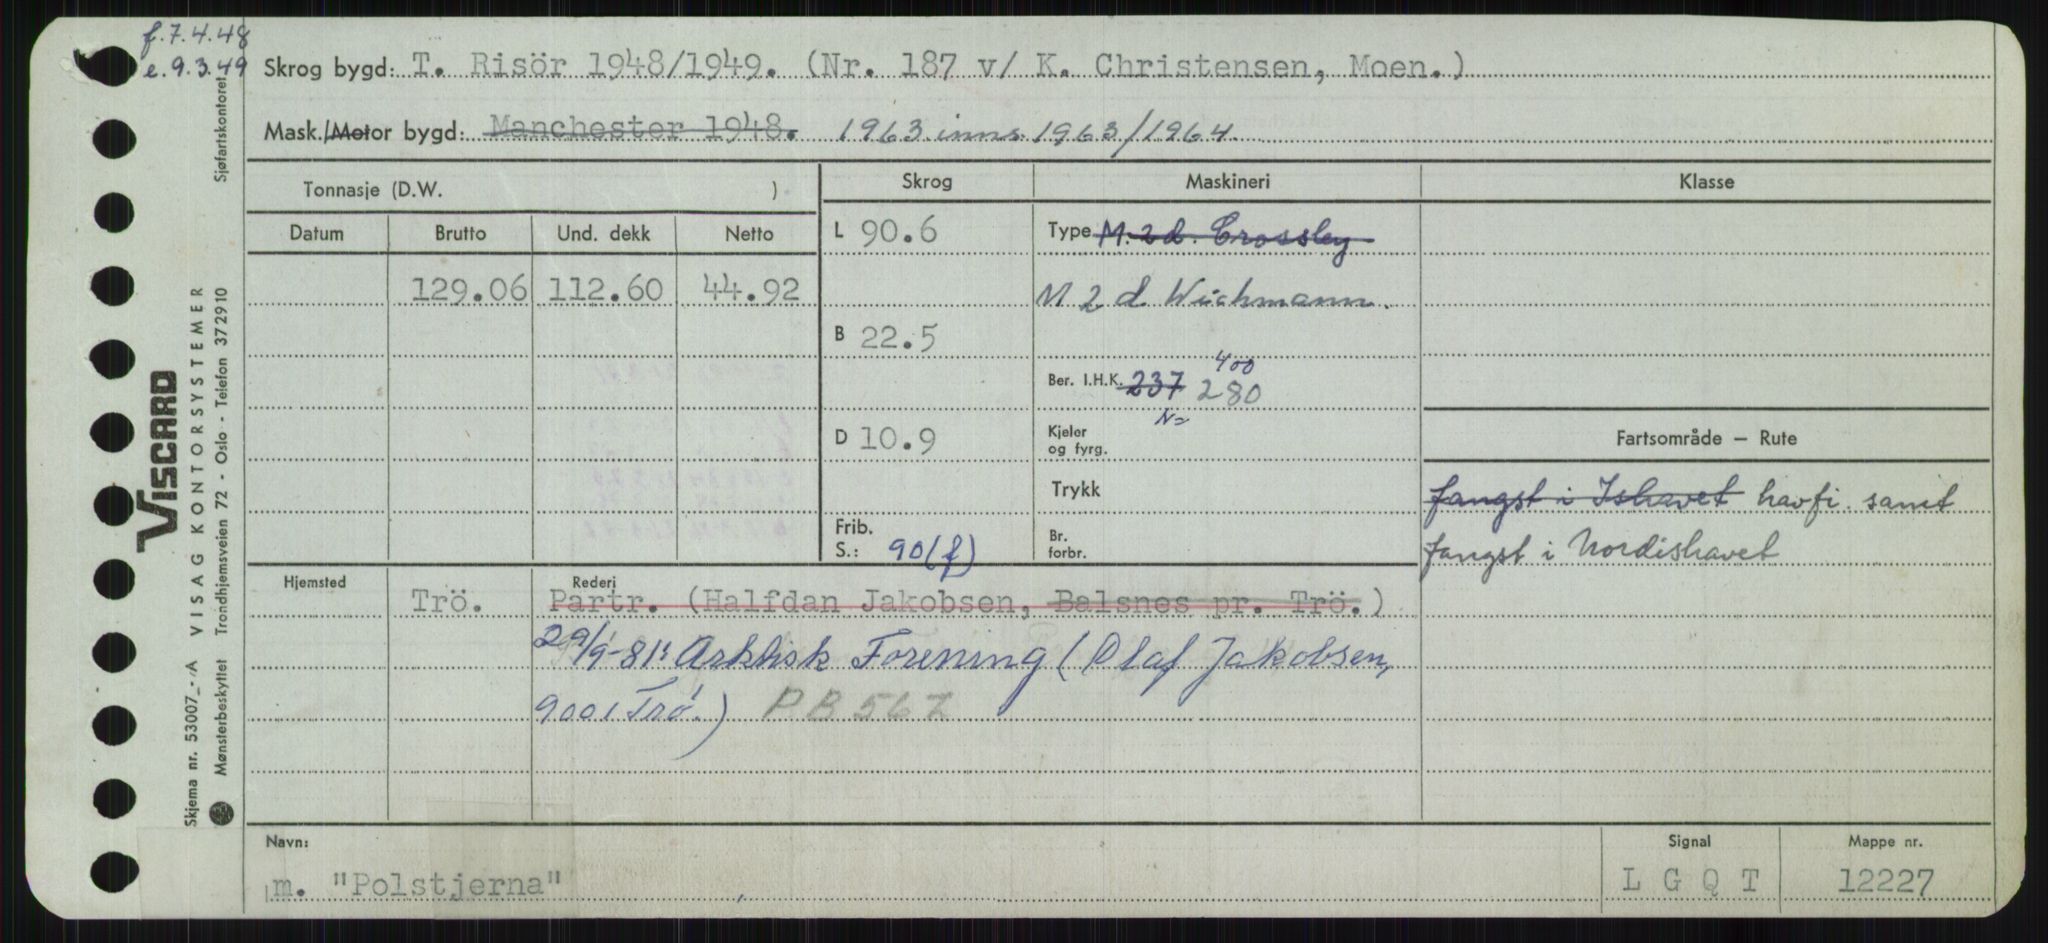 f. 7.4.48
e. 9.3.49
Sjøfartskontoret
Skrog bygd: T. Risör 1948/1949. (Nr. 187 v/ K. Christensen, Moen.)
Mask./Motor bygd: Manchester 1948. 1963 inns. 1963/1964
Tonnasje (D.W. )
Skrog
Maskineri
Klasse
Datum Brutto Und. dekk Netto
129.06 112.60 44.92
L 90.6
B 22.5
D 10.9
Frib. S.: 90(f)
Type M. 2 d. Crossley
M 2 d Wichmann.
400
Ber. I.H.K. 237 280
N=
Kjeler og fyrg.
Trykk
Br. forbr.
Fartsområde – Rute
fangst i Ishavet havfi. samt
fangst i Nordishavet
Hjemsted
Rederi
Trö. Partr. (Halfdan Jakobsen, Balsnes pr. Trö.)
29/9-81: Arktisk Forening (Olaf Jakobsen,
9001 Trö.) PB 567
Navn:
m. "Polstjerna"
Signal
L G Q T
Mappe nr.
12227
VISCARD
VISAG KONTORSYSTEMER
Trondhjemsveien 72 - Oslo - Telefon 372910
Skjema nr. 53007_-A
Mønsterbeskyttet